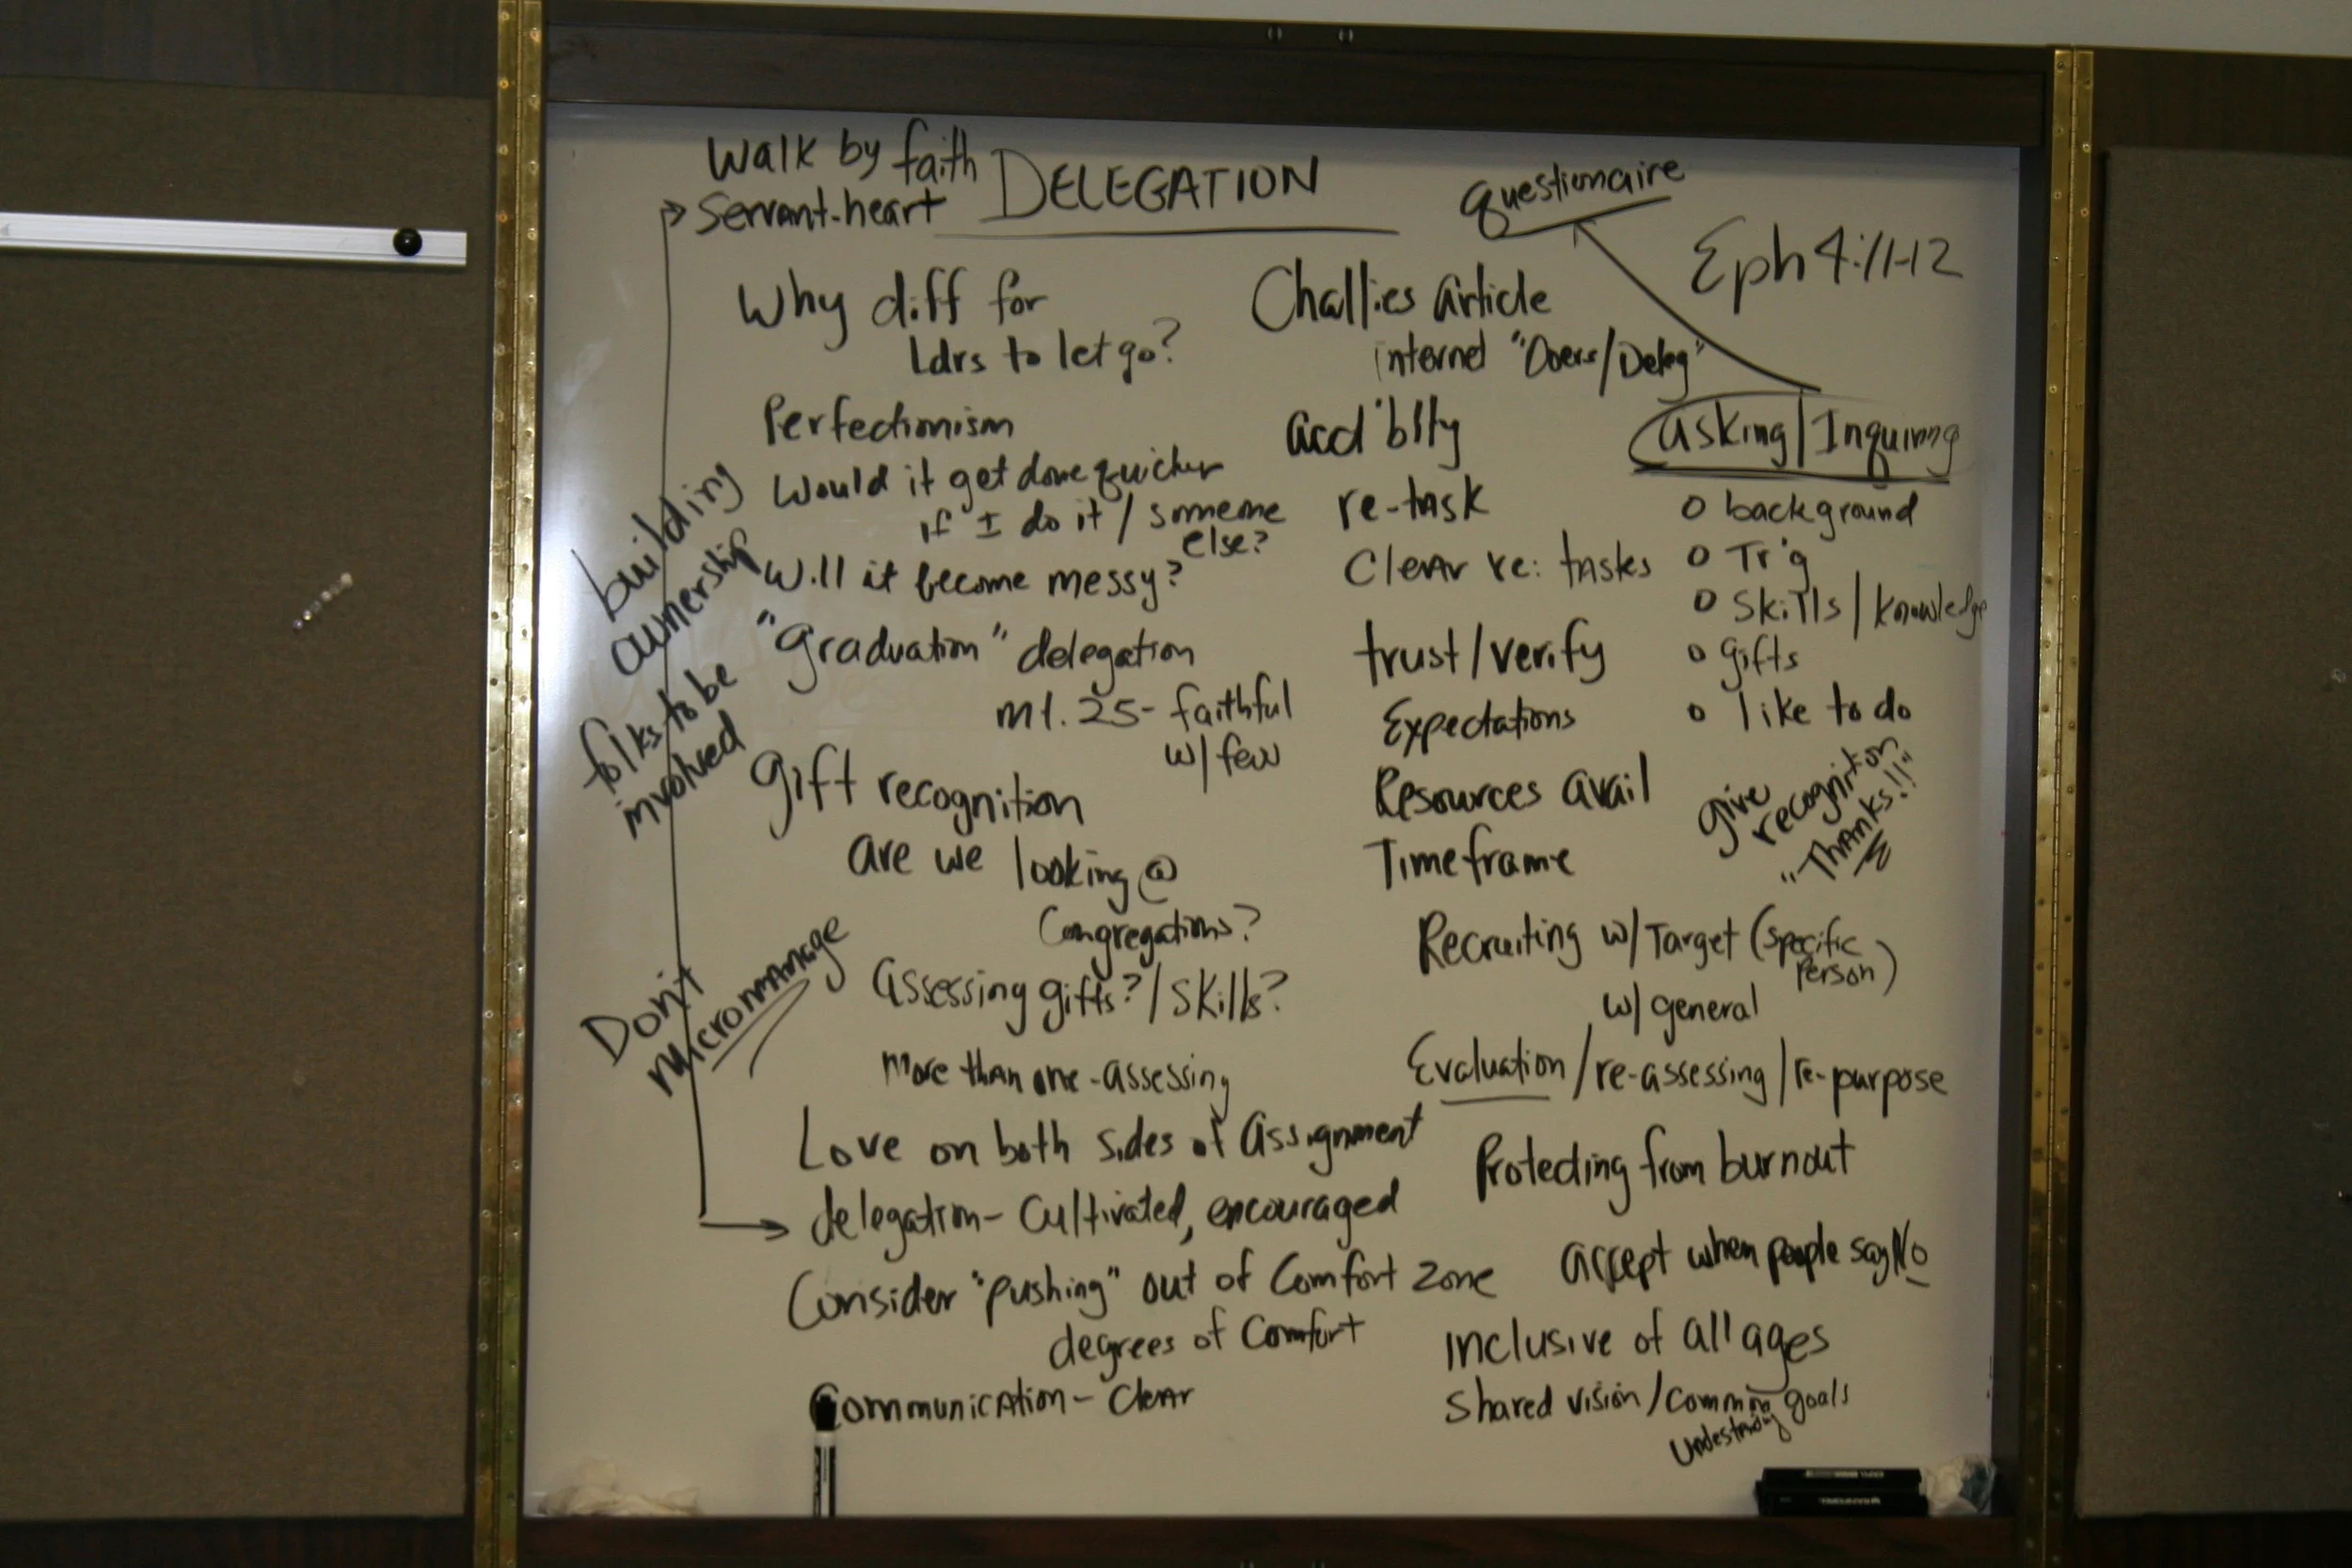 Walk by faith
Servant-heart
DELEGATION
Questionaire
Eph 4:11-12
Why diff for
Ldrs to let go?
Perfectionism
Would it get done quicker
if I do it / someone
else?
Will it become messy?
"Graduation" delegation
Mt. 25- faithful
w/ few
Gift recognition
are we looking @
Congregations?
Assessing gifts? / Skills?
More than one - assessing
Love on both sides of Assignment
delegation - Cultivated, encouraged
Consider "pushing" out of Comfort Zone
degrees of Comfort
Communication - Clear
building
ownership
folks to be
involved
Don't
Micromanage
Challies Article
internet "Doers/Deleg"
acct'blty
re-task
Clear re: tasks
trust/verify
Expectations
Resources avail
Timeframe
Recruiting w/ Target (specific
Person)
w/ general
Evaluation / re-assessing / re-purpose
Protecting from burnout
accept when people say No
inclusive of all ages
Shared vision / common goals
Undestanding
asking / Inquiring
o background
o Tr'g
o Skills / knowledge
o gifts
o like to do
give
recognition
"Thanks!!"